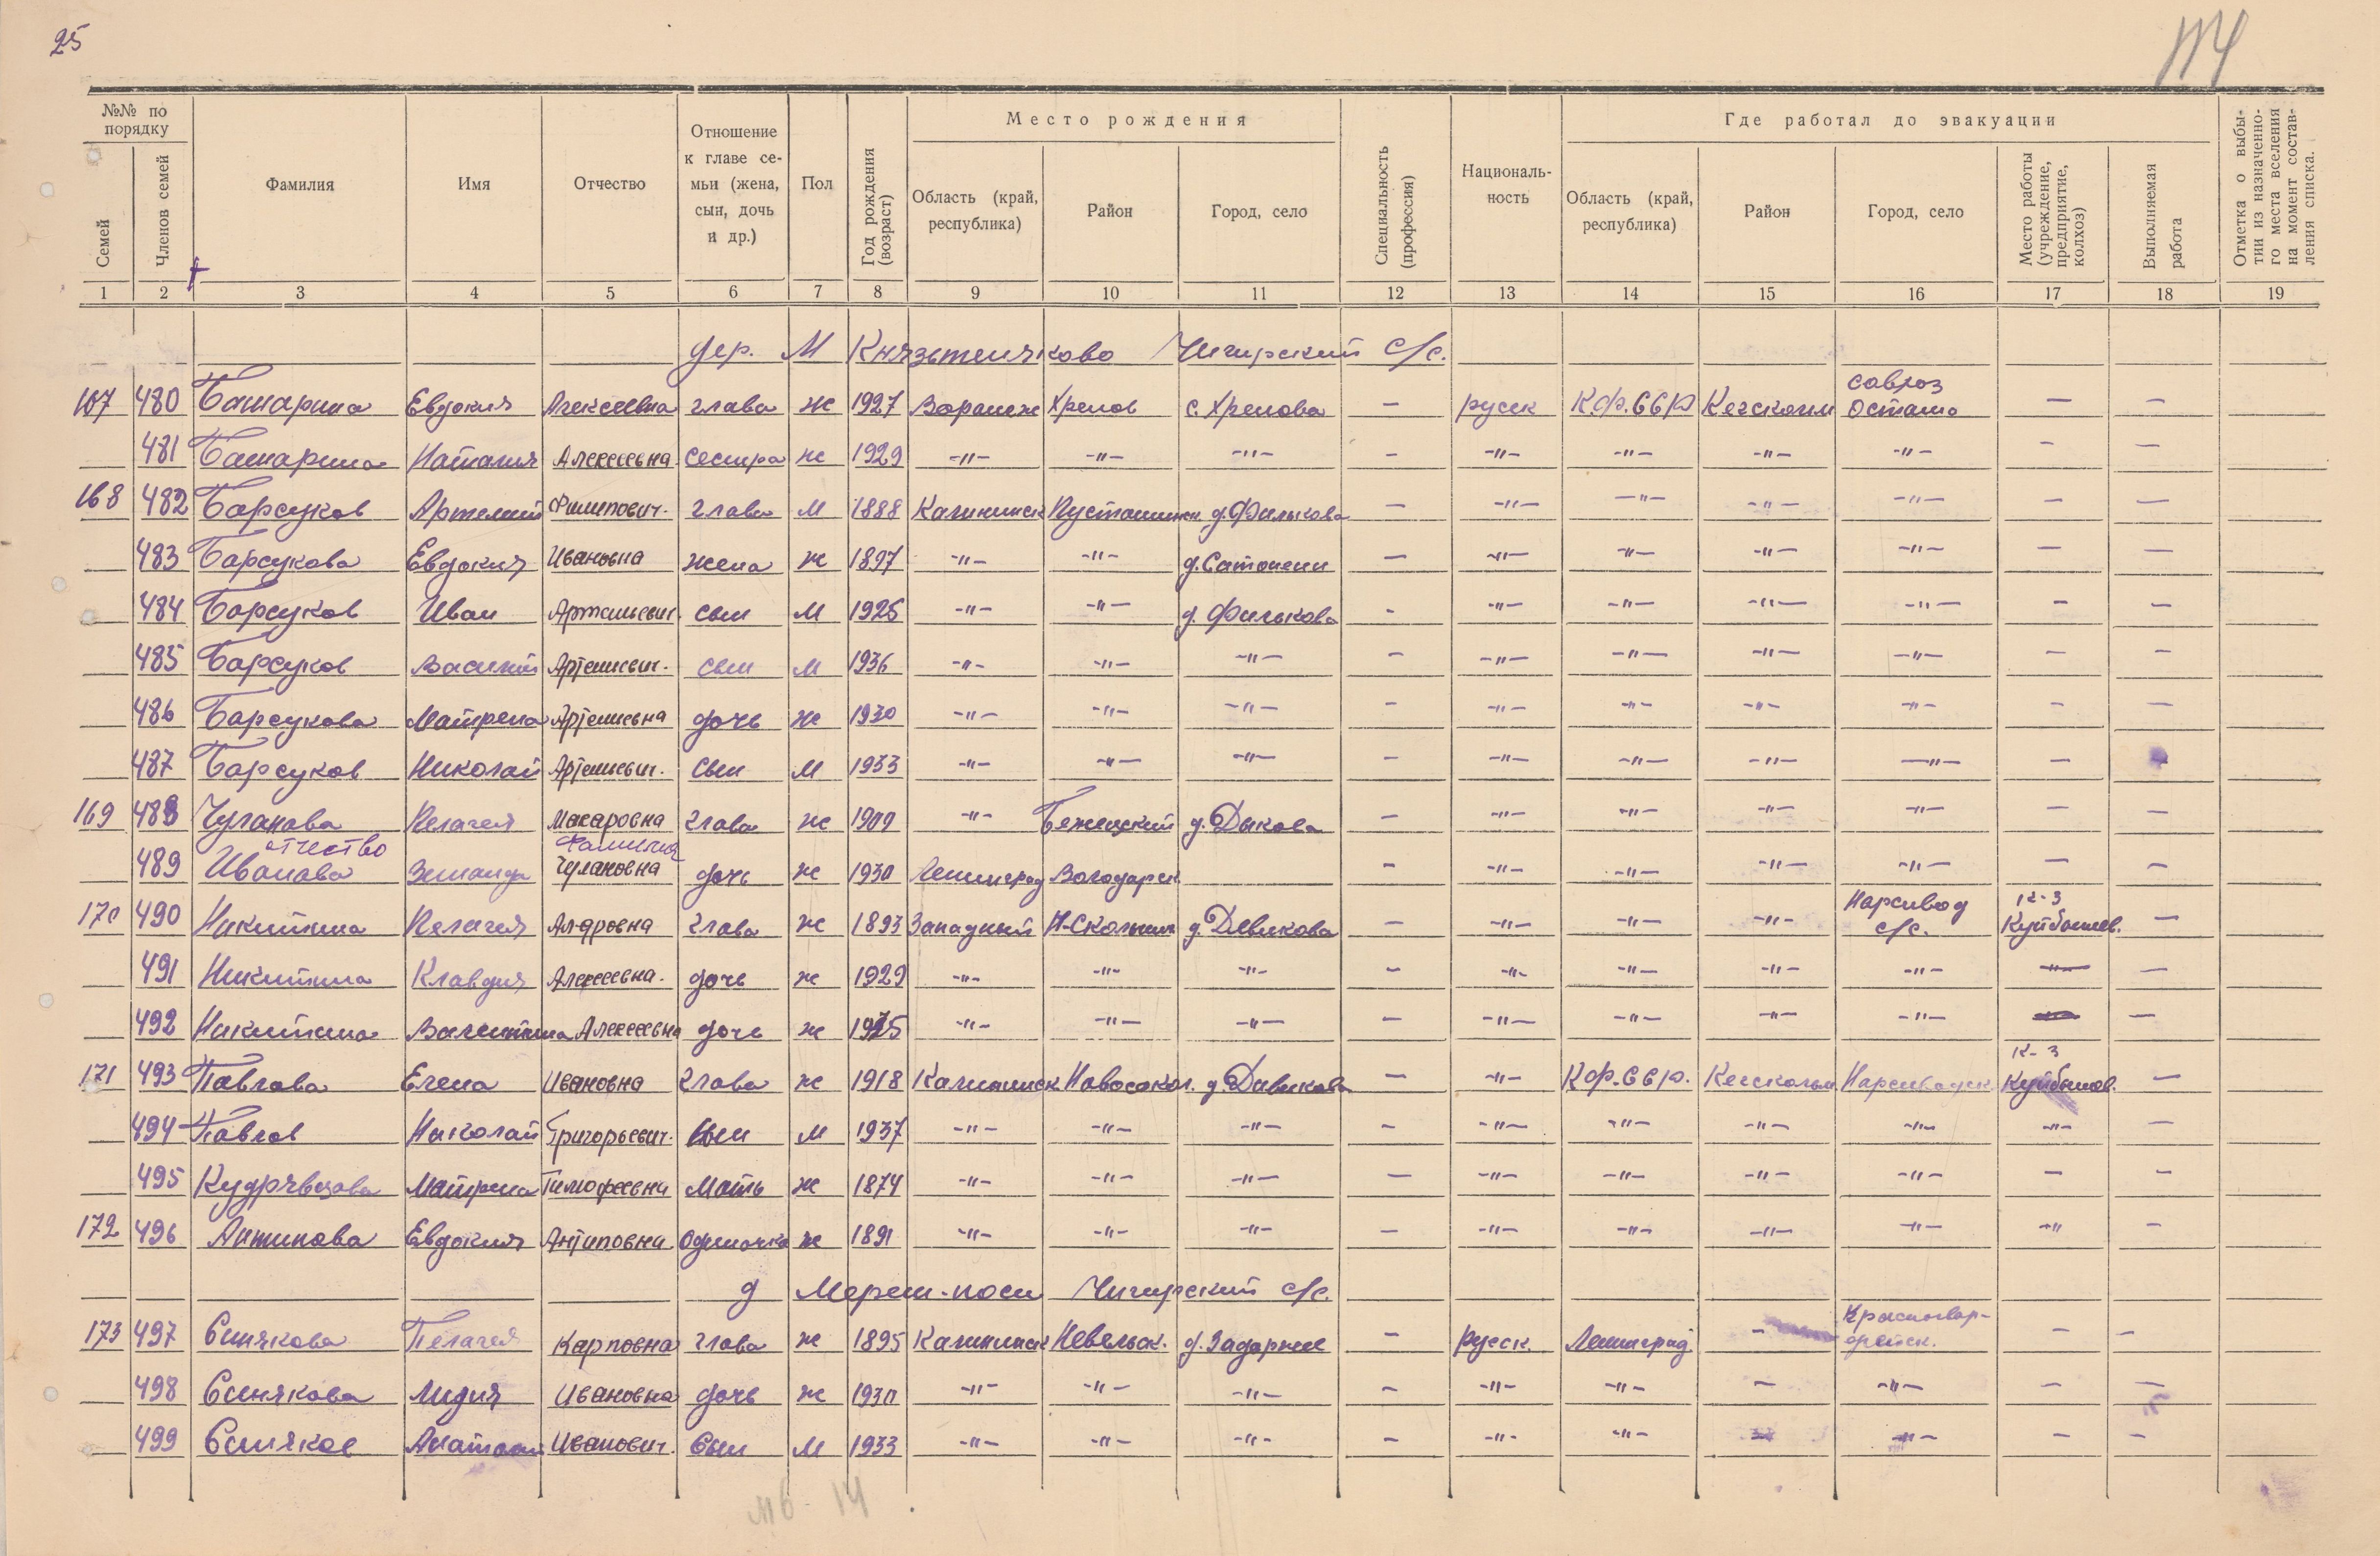 25
114
№№ по порядку
Семей
Членов семей
Фамилия
Имя
Отчество
Отношение к главе семьи (жена, сын, дочь и др.)
Пол
Год рождения (возраст)
Место рождения
Область (край, республика)
Район
Город, село
Специальность (профессия)
Национальность
Где работал до эвакуации
Область (край, республика)
Район
Город, село
Место работы (учреждение, предприятие, колхоз)
Выполняемая работа
Отметка о выбытии из назначенного места вселения на момент составления списка.
1 2 3 4 5 6 7 8 9 10 11 12 13 14 15 16 17 18 19
дер. М Князьтеняково Чигирский с/с.
167 480 Батарина Евдокия Алексеевна глава ж 1927 Воронеж Хренов с. Хренова — русск К.Ф.ССР Кексгольм совхоз Остамо — —
481 Батарина Наталия Алексеевна сестра ж 1929 -"- -"- -"- - -"- -"- -"- -"- - —
168 482 Барсуков Артемий Филипович. глава м 1888 Калининск Пустошинск д. Филькова — -"- -"- -"- -"- — —
483 Барсукова Евдокия Ивановна жена ж 1897 -"- -"- д. Сатонени — -"- -"- -"- -"- — —
484 Барсуков Иван Артемьевич. сын м 1926 -"- -"- д. Филькова - -"- -"- -"- -"- - —
485 Барсуков Василий Артемиевич. сын м 1936 -"- -"- -"- - -"- -"- -"- -"- — -
486 Барсукова Матрена Артемиевна дочь ж 1930 -"- -"- -"- - -"- -"- -"- -"- - —
487 Барсуков Николай Артемиевич. сын м 1933 -"- -"- -"- - -"- -"- -"- -"- —
169 488 Чуланова Пелагея Макаровна глава ж 1909 -"- Бежецкий д. Дыкова — -"- -"- -"- -"- — —
отчество Фамилия
489 Иванова Зинаида Чулановна дочь ж 1930 Ленинград Володарск. - -"- -"- -"- -"- — -
170 490 Никитина Пелагея Ал-дровна глава ж 1893 Западный Н-Скольник д. Девикова — -"- -"- -"- Нарсивод с/с. к-з Куйбышев. —
491 Никитина Клавдия Алексеевна. дочь ж 1929 -"- -"- -"- - -"- -"- -"- -"- -"- —
492 Никитина Валентина Алексеевна дочь ж 1925 -"- -"- -"- — -"- -"- -"- -"- —
171 493 Павлова Елена Ивановна глава ж 1918 Калининск Новосокол. д. Давикова — -"- К.Ф.ССР. Кексгольм. Нарсиводск. к-з Куйбышов. —
494 Павлов Николай Григорьевич. сын м 1937 -"- -"- -"- - -"- -"- -"- -"- -"- —
495 Кудрявцова Матрена Тимофеевна мать ж 1874 -"- -"- -"- — -"- -"- -"- -"- — -
172 496 Антипова Евдокия Антиповна. одиночка ж 1891 -"- -"- -"- — -"- -"- -"- -"- -"- -
д Мереш-поси Чигирский с/с.
173 497 Синякова Пелагея Карповна глава ж 1895 Калининск Невельск. д. Задарнее — русск. Ленинград - Красногвардейск. — —
498 Синякова Лидия Ивановна дочь ж 1930 -"- -"- -"- - -"- -"- — -"- — —
499 Синяков Анатолий Иванович. сын м 1933 -"- -"- -"- - -"- -"- -"- — -
м6 - 14